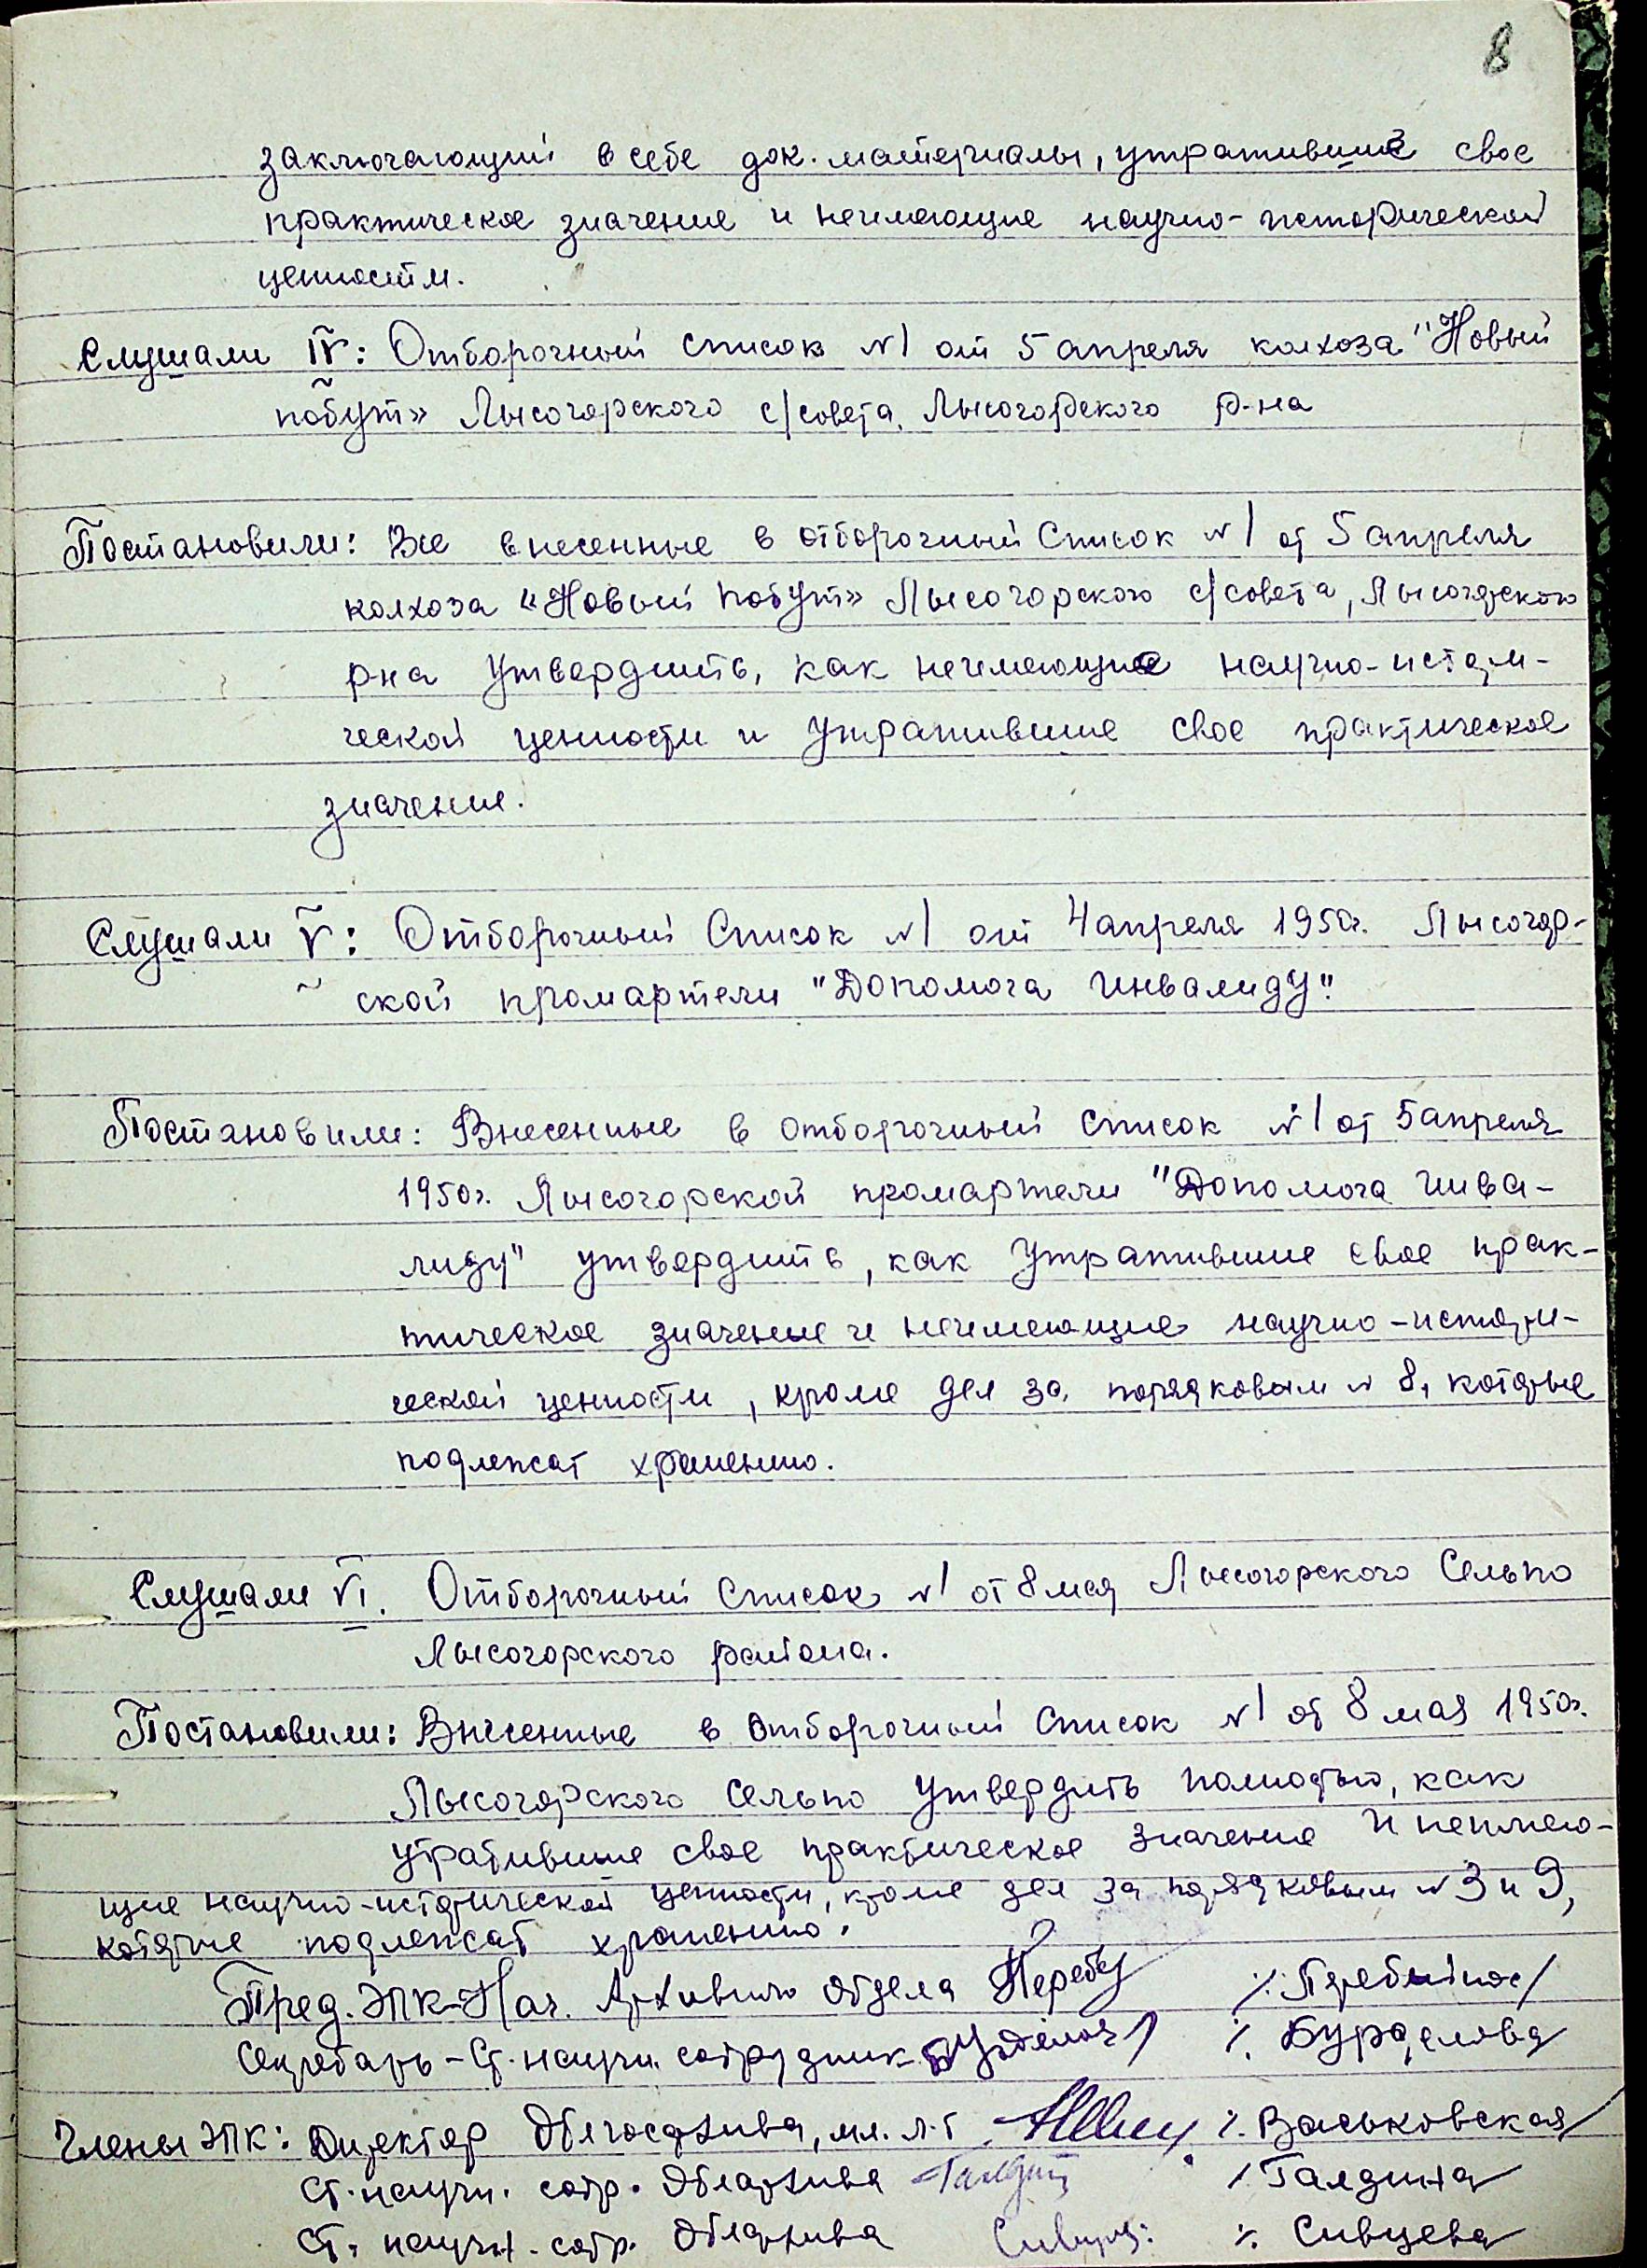 8
заключающий в себе док. материалы, утратившие свое
практическое значение и неимеющие научно-исторической
ценостим.
Слушали IV: Отборочный список №1 от 5 апреля колхоза "Новый
побут» Лысогорского с/совета, Лысогорского р-на
Постановили: Все внесенные в отборочный Список №1 от 5 апреля
колхоза «Новый побут» Лысогорского с/совета, Лысогорского
рна утвердить, как неимеющие научно-истори-
ческой ценности и утратившие свое практическое
значение.
Слушали V: Отборочный Список №1 от 4 апреля 1950г. Лысогор-
ской промартели "Допомога Инвалиду".
Постановили: Внесенные в отборочный Список №1 от 5 апреля
1950г. Лысогорской промартели "Допомога инва-
лиду" утвердить, как утратившие свое прак-
тическое значение и неимеющие научно-истори-
ческой ценности, кроме дел за порядковым № 8, которые
подлежат хранению.
Слушали VI. Отборочный Список №1 от 8 мая Лысогорского Сельпо
Лысогорского района.
Постановили: Внесенные в отборочный Список №1 от 8 мая 1950г.
Лысогорского Сельпо утвердить полностью, как
утратившие свое практическое значение и неимею-
щие научно-исторической ценности, кроме дел за порядковым № 3 и 9,
которые подлежат хранению.
Пред. ЭПК-Нач. Архивного отдела
Секретарь – Ст. научн. сотрудник /. Бурделова/
Члены ЭПК: Директор Облгосархива, мл. л-т /. Васьковская/
Ст. научн. сотр. Облархива /Галдина/
Ст. научн. сотр. Облархива /. Сивцева